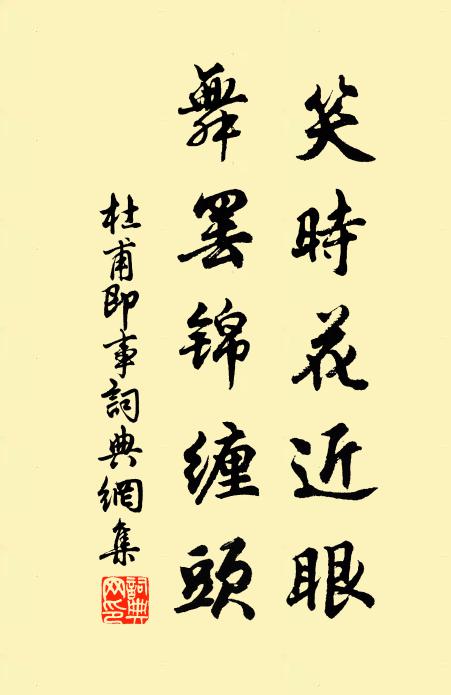 笑時花近眼
舞罷錦纏頭
杜甫即事詞典網集
詞典網印